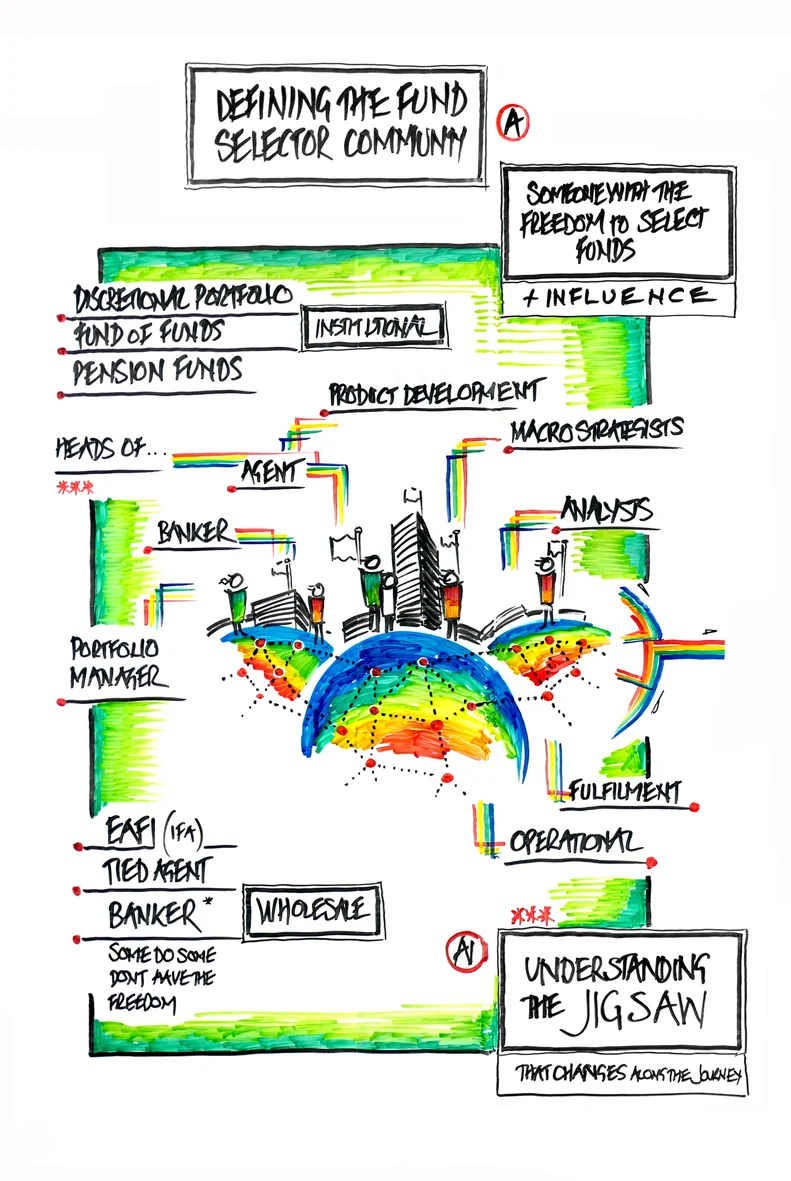 DEFINING THE FUND
SELECTOR COMMUNITY
A
SOMEONE WITH THE
FREEDOM to SELECT
FUNDS
+ INFLUENCE
DISCRETIONAL PORTFOLIO
FUND OF FUNDS
PENSION FUNDS
INSTITUTIONAL
PRODUCT DEVELOPMENT
MACRO STRATEGISTS
HEADS OF...
***
AGENT
BANKER
ANALYSTS
PORTFOLIO
MANAGER
FULFILMENT
OPERATIONAL
EAFI (IFA)
TIED AGENT
BANKER *
SOME DO SOME
DONT HAVE THE
FREEDOM
WHOLESALE
***
A1
UNDERSTANDING
THE JIGSAW
THAT CHANGES ALONG THE JOURNEY